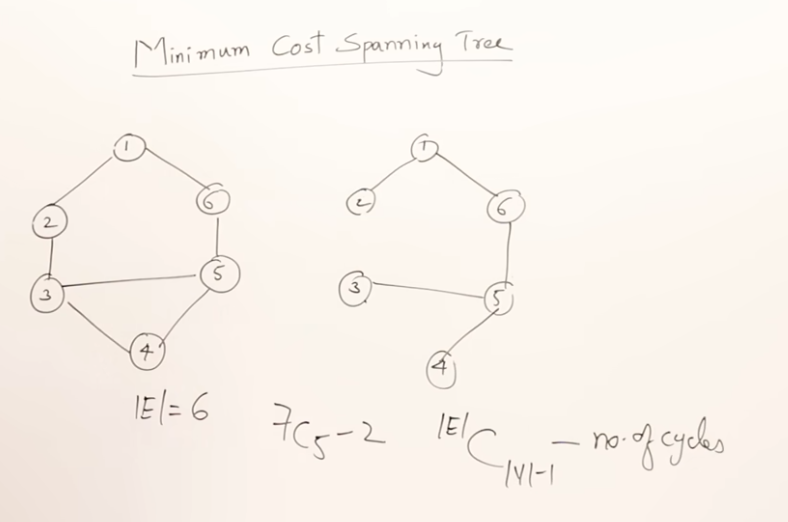 Minimum Cost Spanning Tree
1
2
6
3
5
4
1
2
6
3
5
4
|E|= 6
7C5-2
|E|C|V|-1 - no. of cycles